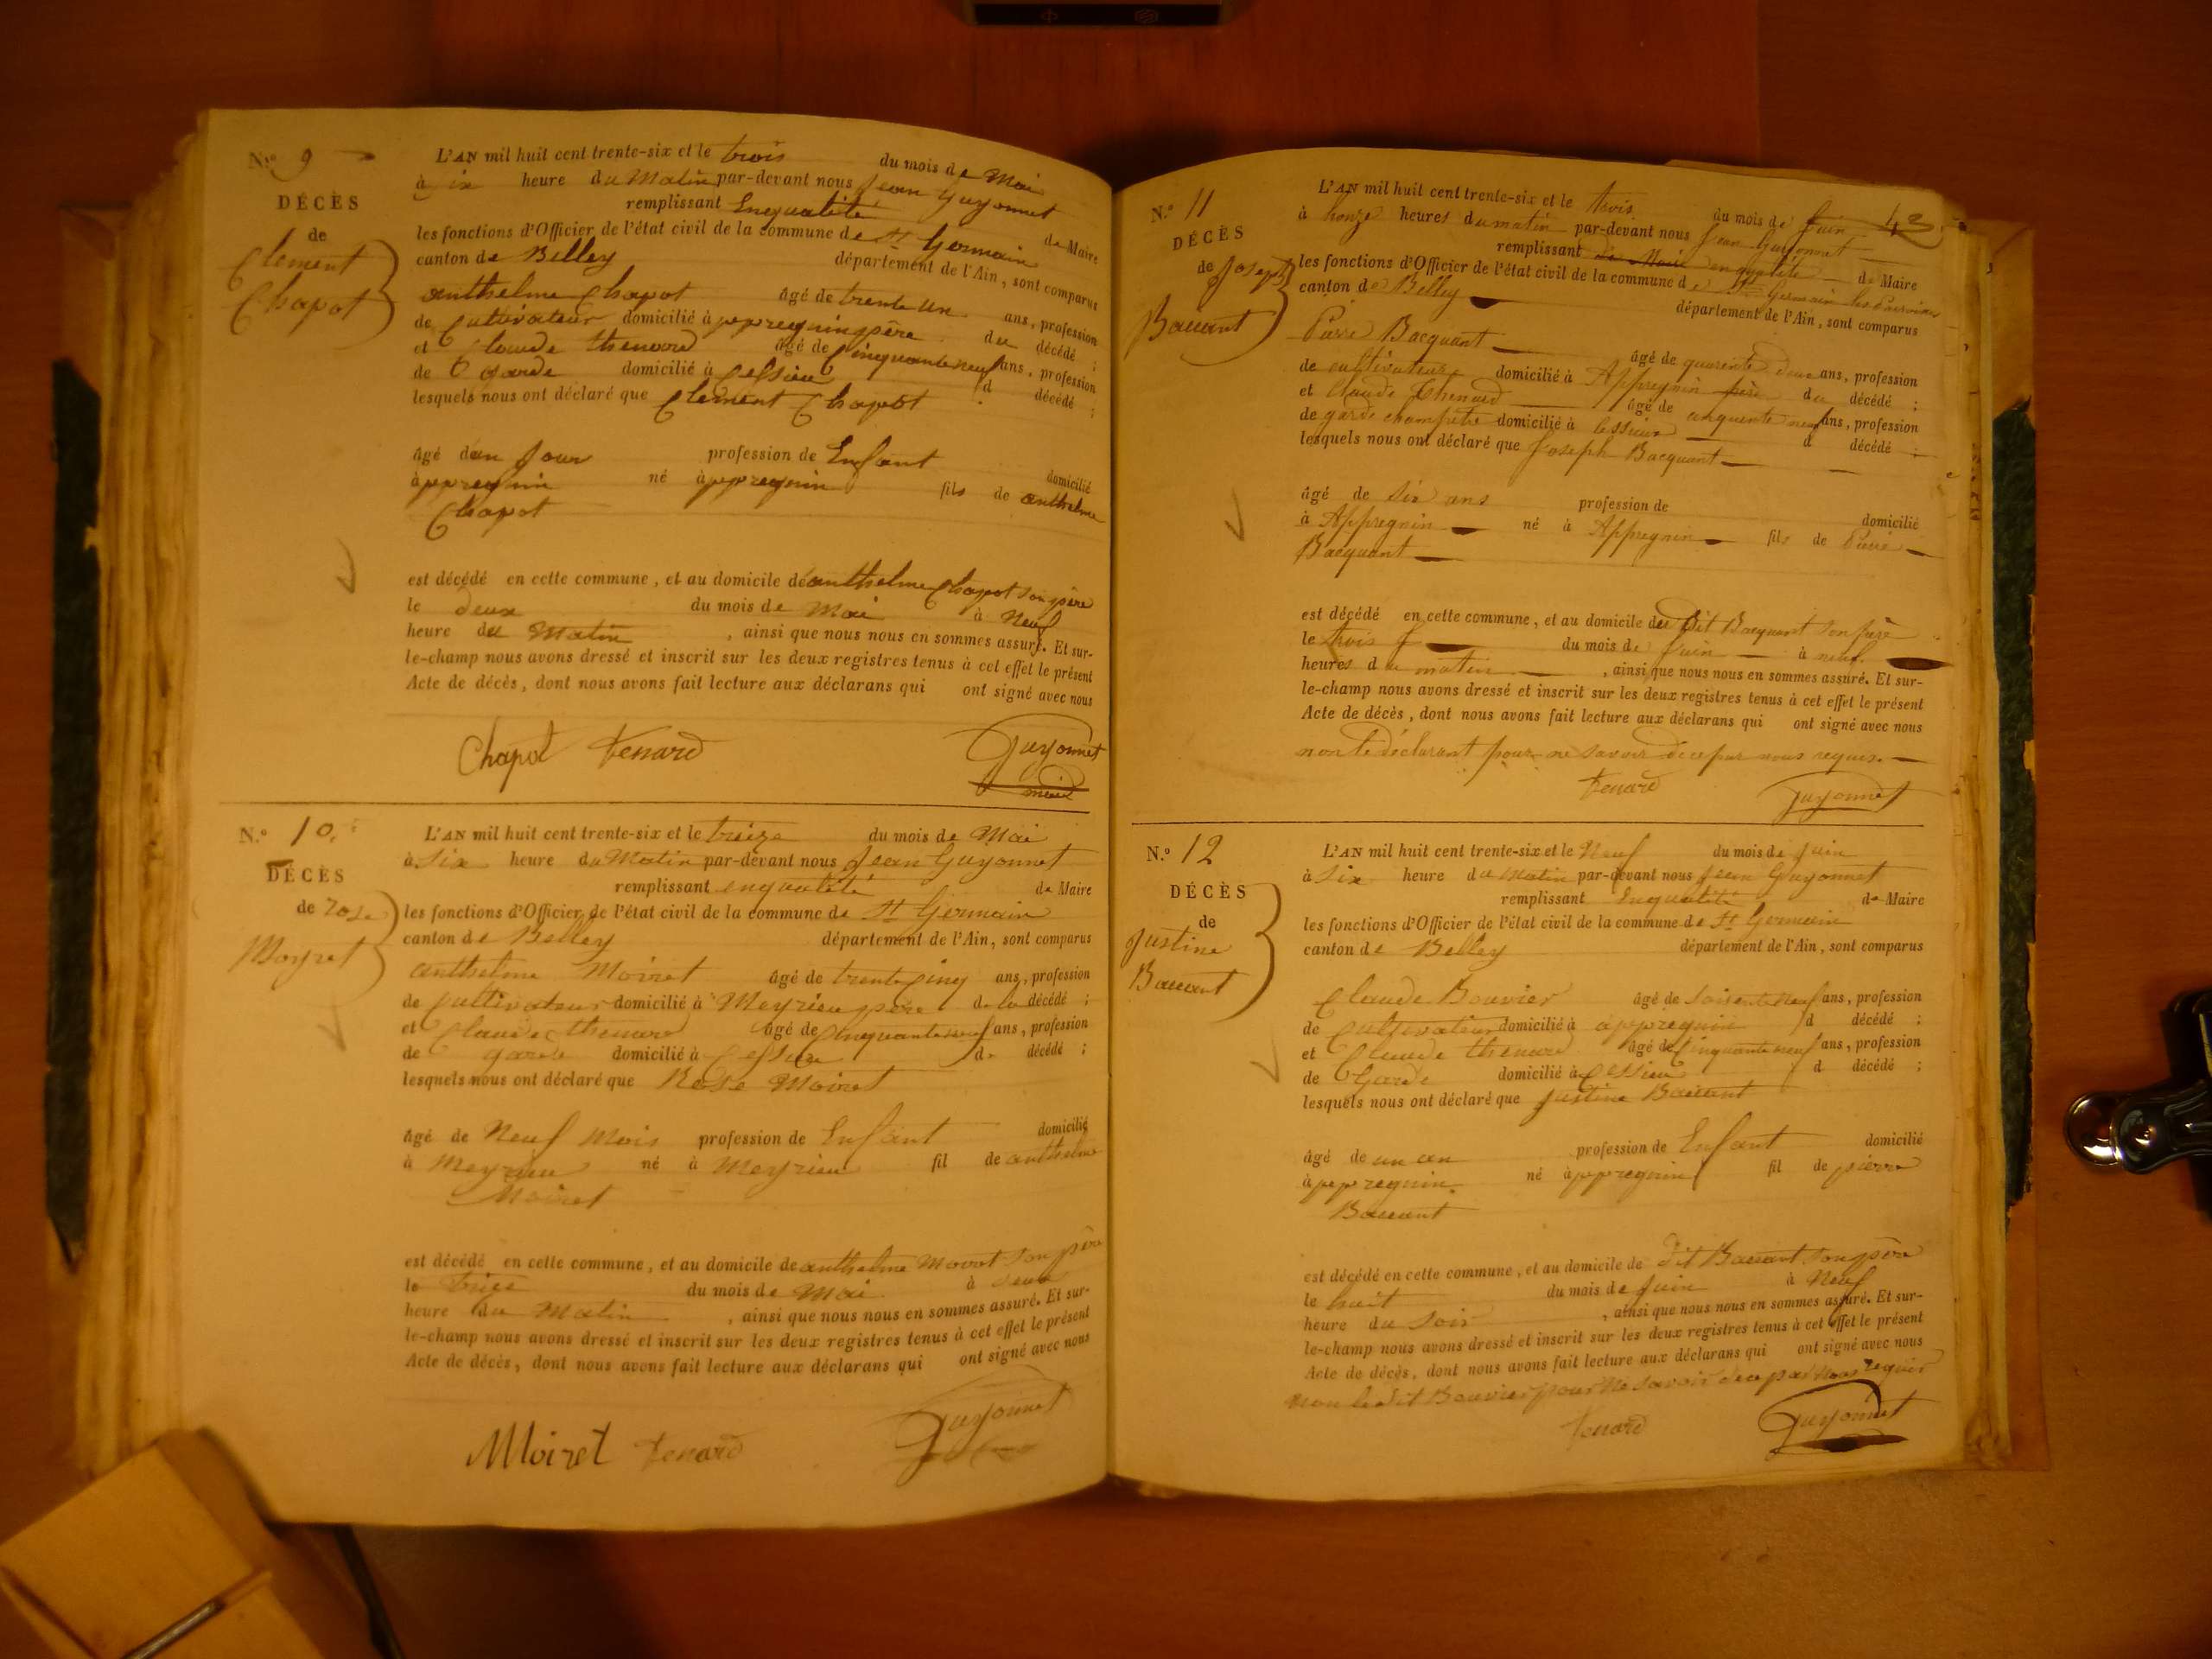 N.º 9
DÉCÈS
de
Clement
Chapot
L'AN mil huit cent trente-six et le trois du mois de Mai
à ix heure du Matin par-devant nous Jean Guyonnet
remplissant Enqualité de Maire
les fonctions d'Officier de l'état civil de la commune de St Germain
canton de Belley département de l'Ain, sont comparus
anthelme Chapot âgé de trente un ans, profession
de Cultivateur domicilié à appregnin père du décédé ;
et Claude thenard âgé de Cinquante neuf ans, profession
de Garde domicilié à Cessieu d décédé ;
lesquels nous ont déclaré que Clement Chapot
âgé d'un Jour profession de Enfant domicilié
àppregnin né àppregnin fils de anthelme
Chapot
est décédé en cette commune, et au domicile de anthelme Chapot son père
le deux du mois de Mai à Neuf
heure du Matin, ainsi que nous nous en sommes assuré. Et sur-
le-champ nous avons dressé et inscrit sur les deux registres tenus à cet effet le présent
Acte de décès, dont nous avons fait lecture aux déclarans qui ont signé avec nous
Chapot tenard Guyonnet
maire
N.º 10
DÉCÈS
de roze
Moyret
L'AN mil huit cent trente-six et le treize du mois de Mai
à Six heure du Matin par-devant nous Jean Guyonnet
remplissant enqualité de Maire
les fonctions d'Officier de l'état civil de la commune de St Germain
canton de Belley département de l'Ain, sont comparus
anthelme Moiret âgé de trente Cinq ans, profession
de Cultivateur domicilié à Meyrieu père de la décédé ;
et Claude thenard âgé de Cinquante neuf ans, profession
de garde domicilié à Cessieu d. décédé ;
lesquels nous ont déclaré que Rose Moiret
âgé de Neuf Mois profession de Enfant domicilié
à Meyrieu né à Meyrieu fil de anthelme
Moiret
est décédé en cette commune, et au domicile de anthelme Moiret son père
le du mois de Mai à
heure du Matin, ainsi que nous nous en sommes assuré. Et sur-
le-champ nous avons dressé et inscrit sur les deux registres tenus à cet effet le présent
Acte de décès, dont nous avons fait lecture aux déclarans qui ont signé avec nous
Moiret tenard Guyonnet
43
N.º 11
DÉCÈS
de Joseph
Bacuant
L'AN mil huit cent trente-six et le trois du mois de Juin
à honze heures du matin par-devant nous Jean Guyonnet
remplissant de Maire enqualité de Maire
les fonctions d'Officier de l'état civil de la commune de St Germain les Paroisses
canton de Belley département de l'Ain, sont comparus
Pierre Bacquant âgé de quarente deux ans, profession
de cultivateur domicilié à Appregnin père du décédé ;
et Claude Thenard âgé de cinquente neuf ans, profession
de garde champêtre domicilié à Cessieux d décédé ;
lesquels nous ont déclaré que Joseph Bacquant
âgé de Six ans profession de domicilié
à Appregnin né à Appregnin fils de Pierre
Bacquant
est décédé en cette commune, et au domicile du Dit Bacquant son père
le trois du mois de Juin à neuf
heures du matin, ainsi que nous nous en sommes assuré. Et sur-
le-champ nous avons dressé et inscrit sur les deux registres tenus à cet effet le présent
Acte de décès, dont nous avons fait lecture aux déclarans qui ont signé avec nous
non le déclarant pour ne savoir de ce par nous reques.
tenard Guyonnet
N.º 12
DÉCÈS
de
Justine
Bacuant
L'AN mil huit cent trente-six et le Neuf du mois de Juin
à Six heure du Matin par-devant nous Jean Guyonnet
remplissant Enqualité de Maire
les fonctions d'Officier de l'état civil de la commune de St Germain
canton de Belley département de l'Ain, sont comparus
Claude Bouvier âgé de Soisente neuf ans, profession
de Cultivateur domicilié à appregnin d décédé ;
et Claude thenard âgé de Cinquante neuf ans, profession
de Garde domicilié à Cessieu d décédé ;
lesquels nous ont déclaré que Justine Bacuant
âgé de un an profession de Enfant domicilié
àppregnin né àppregnin fil de pierre
Bacuant
est décédé en cette commune, et au domicile de dit Bacuant son père
le huit du mois de Juin à Neuf
heure du Soir, ainsi que nous nous en sommes assuré. Et sur-
le-champ nous avons dressé et inscrit sur les deux registres tenus à cet effet le présent
Acte de décès, dont nous avons fait lecture aux déclarans qui ont signé avec nous
non ledit Bouvier pour ne savoir de ce par Nous requis
tenard Guyonnet